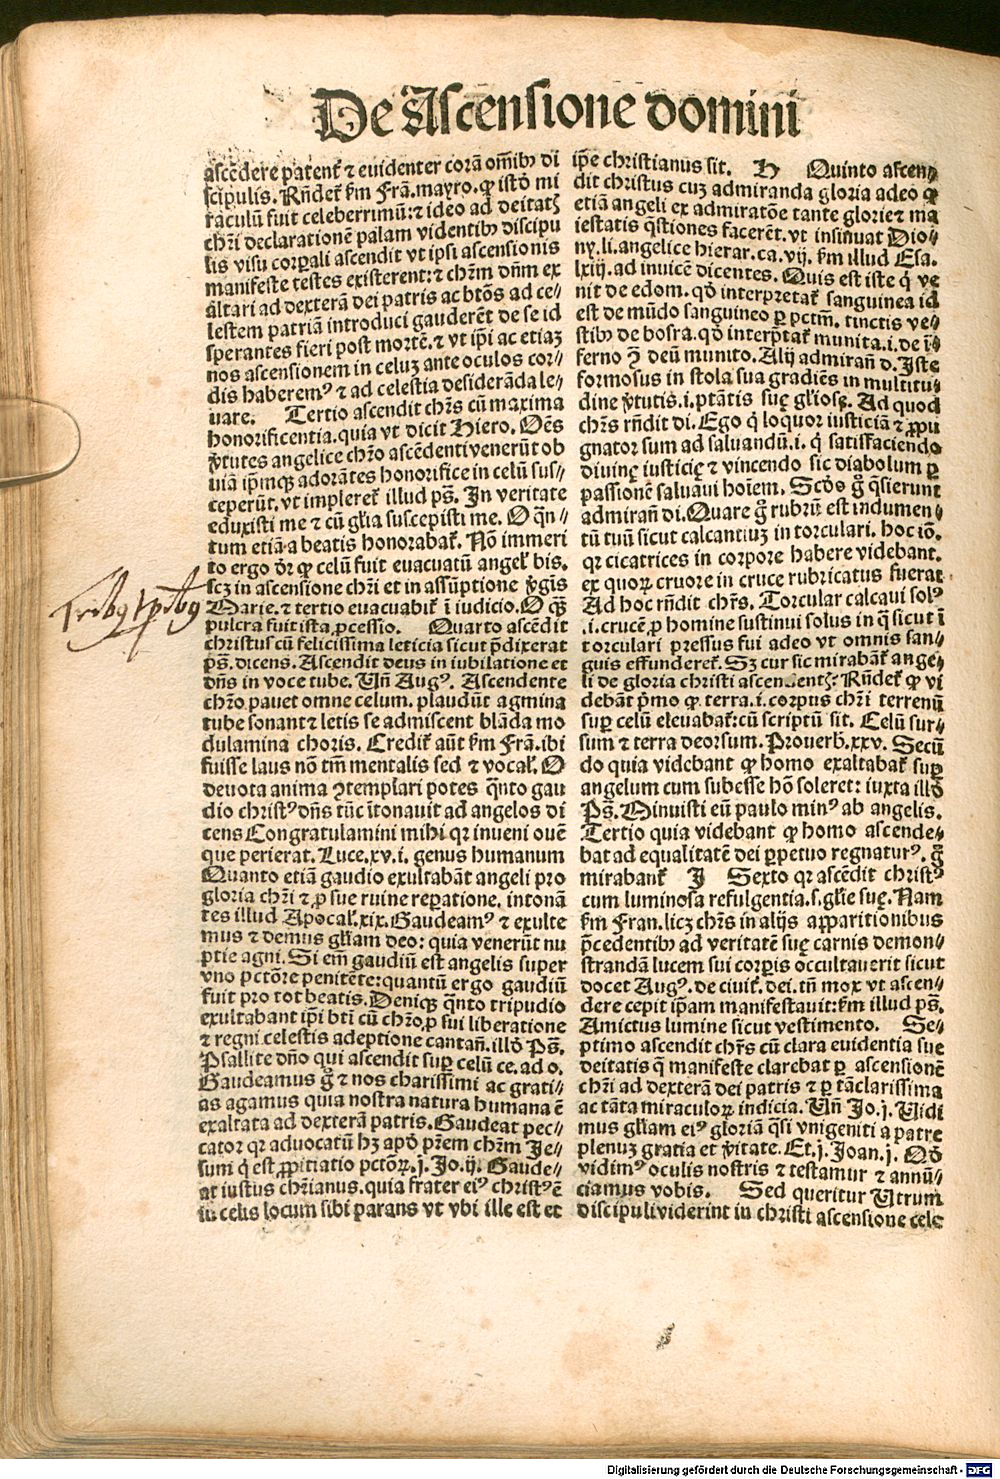 De Ascensione domini
ascēdere patent᷑ ⁊ euidenter corā om̄ibꝰ di
scipulis. Rn̄det᷑ ẜm Frā. mayro. ꝙ istd̓ mi
raculū fuit celeberrimū: ⁊ ideo ad deitatꝭ
chr̄i declarationē palam videntibꝰ discipu
lis visu corꝑali ascendit vt ipsi ascensionis
manifeste testes existerent: ⁊ chr̄m dn̄m ex
altari ad dexterā dei patris ac bt̄os ad ce⸗
lestem patriā introduci gauderēt de se id
sperantes fieri post mortē. ⁊ vt ip̄i ac etiaꝫ
nos ascensionem in celuꝫ ante oculos cor⸗
dis haberemꝰ ⁊ ad celestia desiderāda le⸗
uare. Tertio ascendit chr̄s cū maxima
honorificentia. quia vt dicit Hiero. Oēs
v̓tutes angelice chr̄o ascēdenti venerūt ob
uiā ip̄mqꝫ adorātes honorifice in celū sus⸗
ceperūt. vt impleret᷑ illud ps̄. In veritate
eduxisti me ⁊ cū gl̓ia suscepisti me. O qn̄⸗
tum etiā a beatis honorabat᷑. Nō immeri
to ergo dr̄ ꝙ celū fuit euacuatū angel᷑ bis.
scꝫ in ascensione chr̄i et in assūptione v̓gīs
Marie. ⁊ tertio euacuabit᷑ ī iudicio. O qꝫ̄
pulcra fuit ista ꝓcessio. Quarto ascēdit
christus cū felicissima leticia sicut p̄dixerat
ps̄. dicens. Ascendit deus in iubilatione et
dn̄s in voce tube. Vn̄ Augꝰ. Ascendente
chr̄o pauet omne celum. plaudūt agmina
tube sonant ⁊ letis se admiscent blāda mo
dulamina choris. Credit᷑ aūt ẜm Frā. ibi
fuisse laus nō tm̄ mentalis sed ⁊ vocal᷑. O
deuota anima ꝯtemplari potes qn̄to gau
dio christꝰ dn̄s tūc ītonauit ad angelos di
cens Congratulamini mihi qꝛ inueni ouē
que perierat. Luce. xv. i. genus humanum
Quanto etiā gaudio exultabāt angeli pro
gloria chr̄i ⁊ ꝓ sue ruine reꝑatione. intonā
tes illud Apocal᷑. xix. Gaudeamꝰ ⁊ exulte
mus ⁊ demus gl̓iam deo: quia venerūt nu
ptie agni. Si em̄ gaudiū est angelis super
vno pctōre penitēte: quantū ergo gaudiū
fuit pro tot beatis. Deniqꝫ qn̄to tripudio
exultabant ip̄i bt̄i cū chr̄o, ꝓ sui liberatione
⁊ regni celestis adeptione cantan̄. illd̓ Ps̄.
Psallite dn̄o qui ascendit suꝑ celū ce. ad o.
Gaudeamus g̊ ⁊ nos charissimi ac grati⸗
as agamus quia nostra natura humana ē
exaltata ad dexterā patris. Gaudeat pec⸗
cator qꝛ aduocatū hꝫ apd̓ pr̄em chr̄m Je⸗
sum q̓ est ꝓpitiatio pctōꝝ. j. Jo. ij. Gaude⸗
at iustus chr̄ianus. quia frater eiꝰ christꝰ ē
in celis locum sibi parans vt vbi ille est et
Tribꝰ tp̄ibꝰ
ip̄e christianus sit. H Quinto ascen⸗
dit christus cuꝫ admiranda gloria adeo ꝙ
etiā angeli ex admiratōe tante glorie ⁊ ma
iestatis q̄stiones facerēt. vt insinuat Dio⸗
ny. li. angelice hierar. ca. vij. ẜm illud Esa.
lxiij. ad inuicē dicentes. Quis est iste q̓ ve
nit de edom. qd̓ interpretat᷑ sanguinea id
est de mūdo sanguineo ꝑ pctm̄. tinctis ve⸗
stibꝰ de bosra. qd̓ interp̄tat᷑ munita. i. de ī⸗
ferno ꝯ̄ deū munito. Alij admiran̄ d. Iste
formosus in stola sua gradiēs in multitu⸗
dine v̓tutis. i. ptātis suę gl̓iosę. Ad quod
chr̄s rn̄dit di. Ego q̓ loquor iusticiā ⁊ ꝓpu
gnator sum ad saluandū. i. q̓ satisfaciendo
diuinę iusticię ⁊ vincendo sic diabolum ꝑ
passionē saluaui hoīem. Scd̓s g̊ q̄sierunt
admiran̄ di. Quare g̊ rubrū est indumen⸗
tū tuū sicut calcantiuꝫ in torculari. hoc iō.
qꝛ cicatrices in corpore habere videbant.
ex quoꝝ cruore in cruce rubricatus fuerat
Ad hoc rn̄dit chr̄s. Torcular calcaui solꝰ
.i. crucē, ꝓ homine sustinui solus in q̓ sicut ī
torculari pressus fui adeo vt omnis san⸗
guis effunderet᷑. Sꝫ cur sic mirabāt᷑ ange⸗
li de gloria christi ascendentꝭ. Rn̄det᷑ ꝙ vi
debāt p̓mo ꝙ terra. i. corpus chr̄i terrenū
suꝑ celū eleuabat᷑: cū scriptū sit. Celū sur⸗
sum ⁊ terra deorsum. Prouerb̓. xxv. Secū
do quia videbant ꝙ homo exaltabat᷑ suꝑ
angelum cum subesse hō soleret: iuxta illd̓
Ps̄. Minuisti eū paulo minꝰ ab angelis.
Tertio quia videbant ꝙ homo ascende⸗
bat ad equalitatē dei ꝑpetuo regnaturꝰ. g̊
mirabant᷑ J Sexto qꝛ ascēdit christꝰ
cum luminosa refulgentia. s. gl̓ie suę. Nam
ẜm Fran. licꝫ chr̄s in alijs apparitionibus
p̄cedentibꝰ ad veritatē suę carnis demon⸗
strandā lucem sui corꝑis occultauerit sicut
docet Augꝰ. de ciuit᷑. dei. tn̄ mox vt ascen⸗
dere cepit ip̄am manifestauit: ẜm illud ps̄.
Amictus lumine sicut vestimento. Se⸗
ptimo ascendit chr̄s cū clara euidentia sue
deitatis q̄ manifeste clarebat ꝑ ascensionē
chr̄i ad dexterā dei patris ⁊ ꝑ tā clarissima
ac tāta miraculoꝝ indicia. Vn̄ Jo. j. Vidi
mus gl̓iam eiꝰ gloriā q̄si vnigeniti a patre
plenuꝫ gratia et v̓itate. Et. j. Joan. j. Qd̓
vidimꝰ oculis nostris ⁊ testamur ⁊ annū⸗
ciamus vobis. Sed queritur Utrum
discipuli viderint in christi ascensione cele
Digitalisierung gefördert durch die Deutsche Forschungsgemeinschaft - DFG